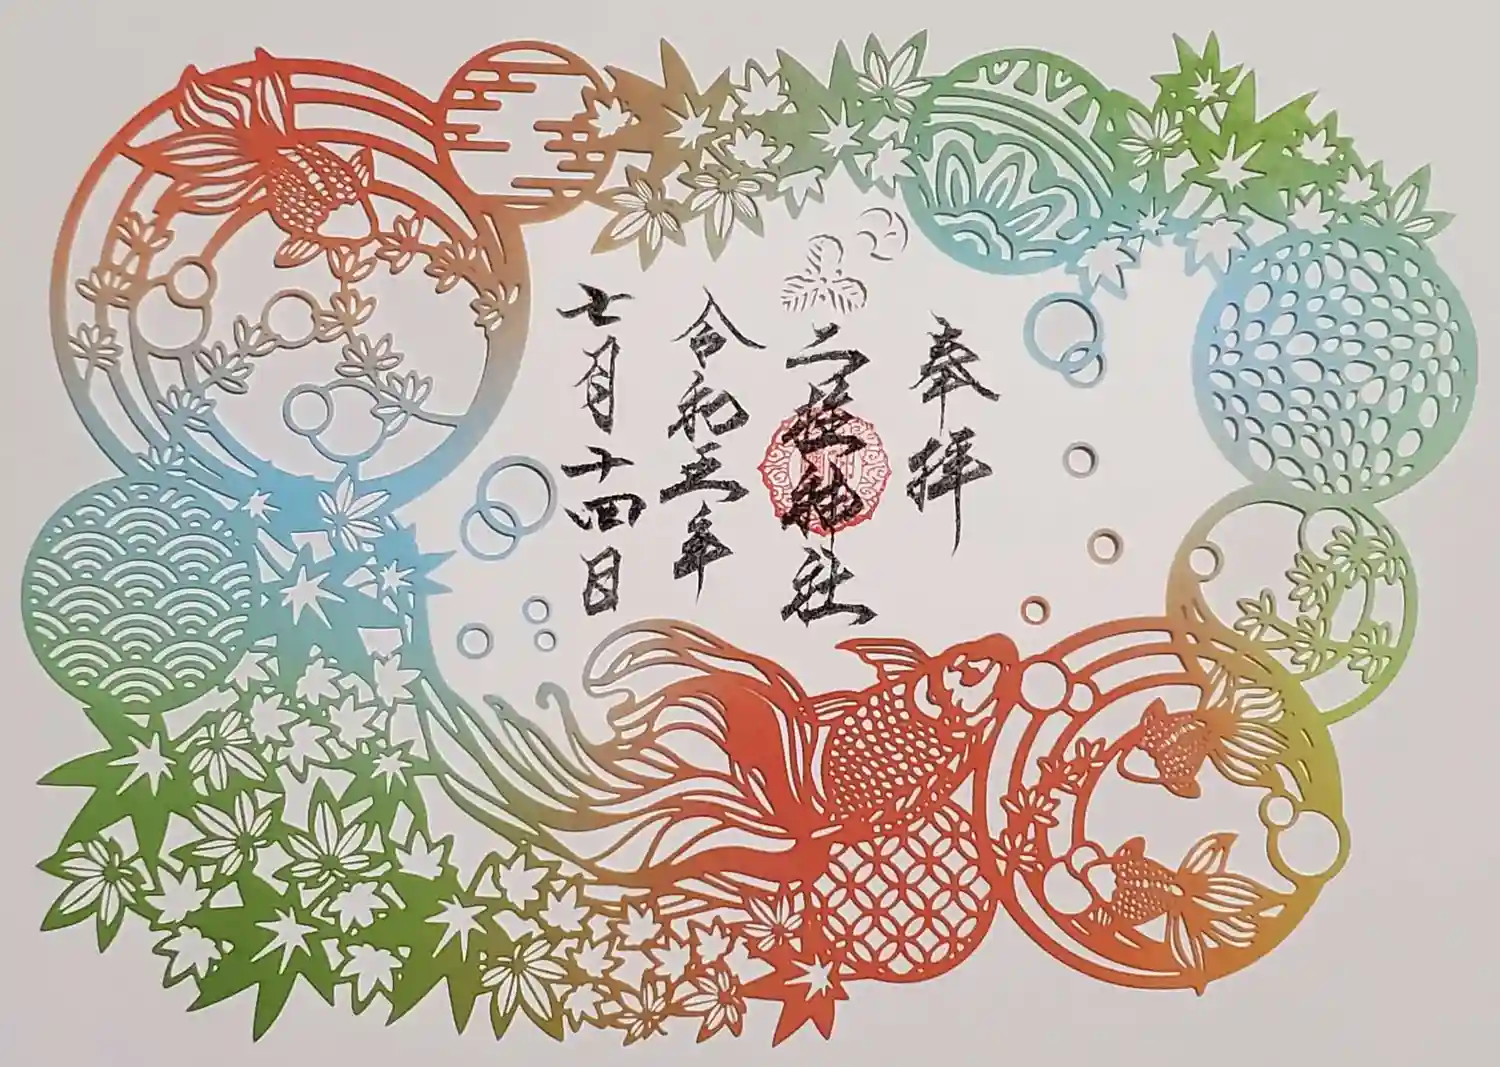 奉拝
二柱神社
令和三年
七月十四日